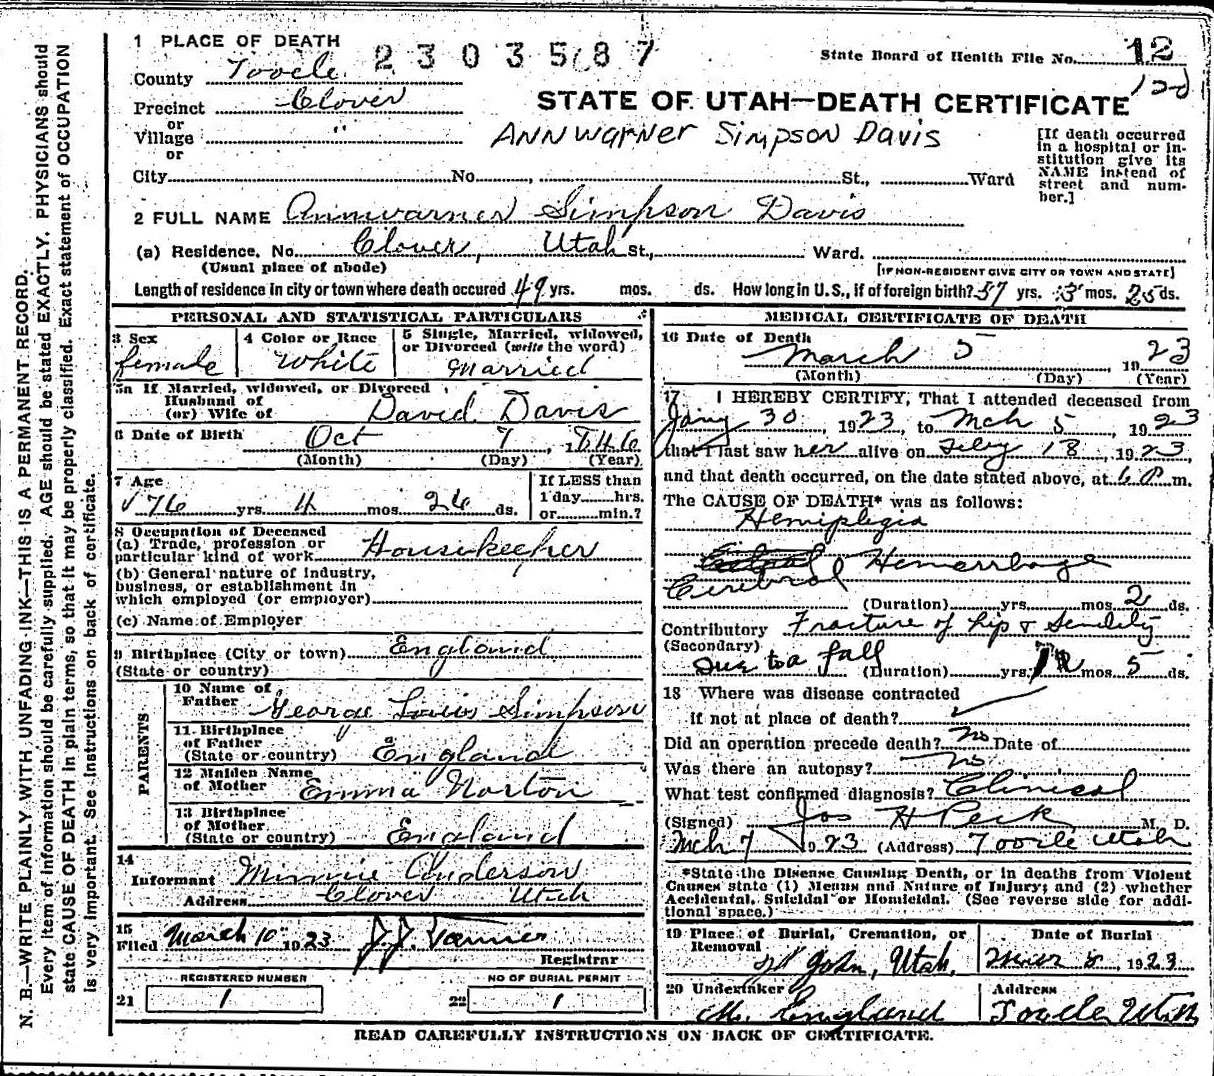 1 PLACE OF DEATH
2303587
State Board of Health File No. 12
County Tooele
Precinct Clover
STATE OF UTAH—DEATH CERTIFICATE
or
Village "
Ann Warner Simpson Davis
or
City No. , St., Ward
[If death occurred in a hospital or institution give its NAME instead of street and number.]
2 FULL NAME Annwarner Simpson Davis
(a) Residence, No. Clover, Utah St., Ward.
(Usual place of abode)
[IF NON-RESIDENT GIVE CITY OR TOWN AND STATE]
Length of residence in city or town where death occured 49 yrs. mos. ds. How long in U.S., if of foreign birth? 57 yrs. 3 mos. 25 ds.
PERSONAL AND STATISTICAL PARTICULARS
3 Sex
female
4 Color or Race
White
5 Single, Married, widowed, or Divorced (write the word)
Married
5a If Married, widowed, or Divorced
Husband of
(or) Wife of David Davis
6 Date of Birth Oct 7, 1846
(Month) (Day) (Year)
7 Age
76 yrs. 4 mos. 26 ds.
If LESS than
1 day hrs.
or min.?
8 Occupation of Deceased
(a) Trade, profession or
particular kind of work Housekeeper
(b) General nature of industry,
business, or establishment in
which employed (or employer)
(c) Name of Employer
9 Birthplace (City or town) England
(State or country)
PARENTS
10 Name of
Father George Louis Simpson
11 Birthplace
of Father
(State or country) England
12 Maiden Name
of Mother Emma Norton
13 Birthplace
of Mother
(State or country) England
14
Informant Minnie Anderson
Address Clover Utah
15
Filed March 10 1923 J.J. Tanner
Registrar
REGISTERED NUMBER
21 1
NO OF BURIAL PERMIT
22 1
MEDICAL CERTIFICATE OF DEATH
16 Date of Death
March 5 1923
(Month) (Day) (Year)
17 I HEREBY CERTIFY, That I attended deceased from
Jany 30, 1923, to Mch 5, 1923
that I last saw her alive on Feby 18, 1923,
and that death occurred, on the date stated above, at 6 P m.
The CAUSE OF DEATH* was as follows:
Hemiplegia
Hemorrhage
Cerebral
(Duration) yrs. mos. 2 ds.
Contributory Fracture of hip & Senility
(Secondary)
Due to a fall (Duration) yrs. mos. 5 ds.
18 Where was disease contracted
if not at place of death?
Did an operation precede death? No Date of
Was there an autopsy? No
What test confirmed diagnosis? Clinical
(Signed) Jos H Peck M. D.
Mch 7 1923 (Address) Tooele Utah
*State the Disease Causing Death, or in deaths from Violent
Causes state (1) Means and Nature of Injury; and (2) whether
Accidental, Suicidal or Homicidal. (See reverse side for addi-
tional space.)
19 Place of Burial, Cremation, or
Removal
St John, Utah.
Date of Burial
8, 1923
20 Undertaker
M. England
Address
Tooele Utah
READ CAREFULLY INSTRUCTIONS ON BACK OF CERTIFICATE.
N. B.—WRITE PLAINLY WITH UNFADING INK—THIS IS A PERMANENT RECORD.
Every item of information should be carefully supplied. AGE should be stated EXACTLY. PHYSICIANS should
state CAUSE OF DEATH in plain terms, so that it may be properly classified. Exact statement of OCCUPATION
is very important. See Instructions on back of certificate.